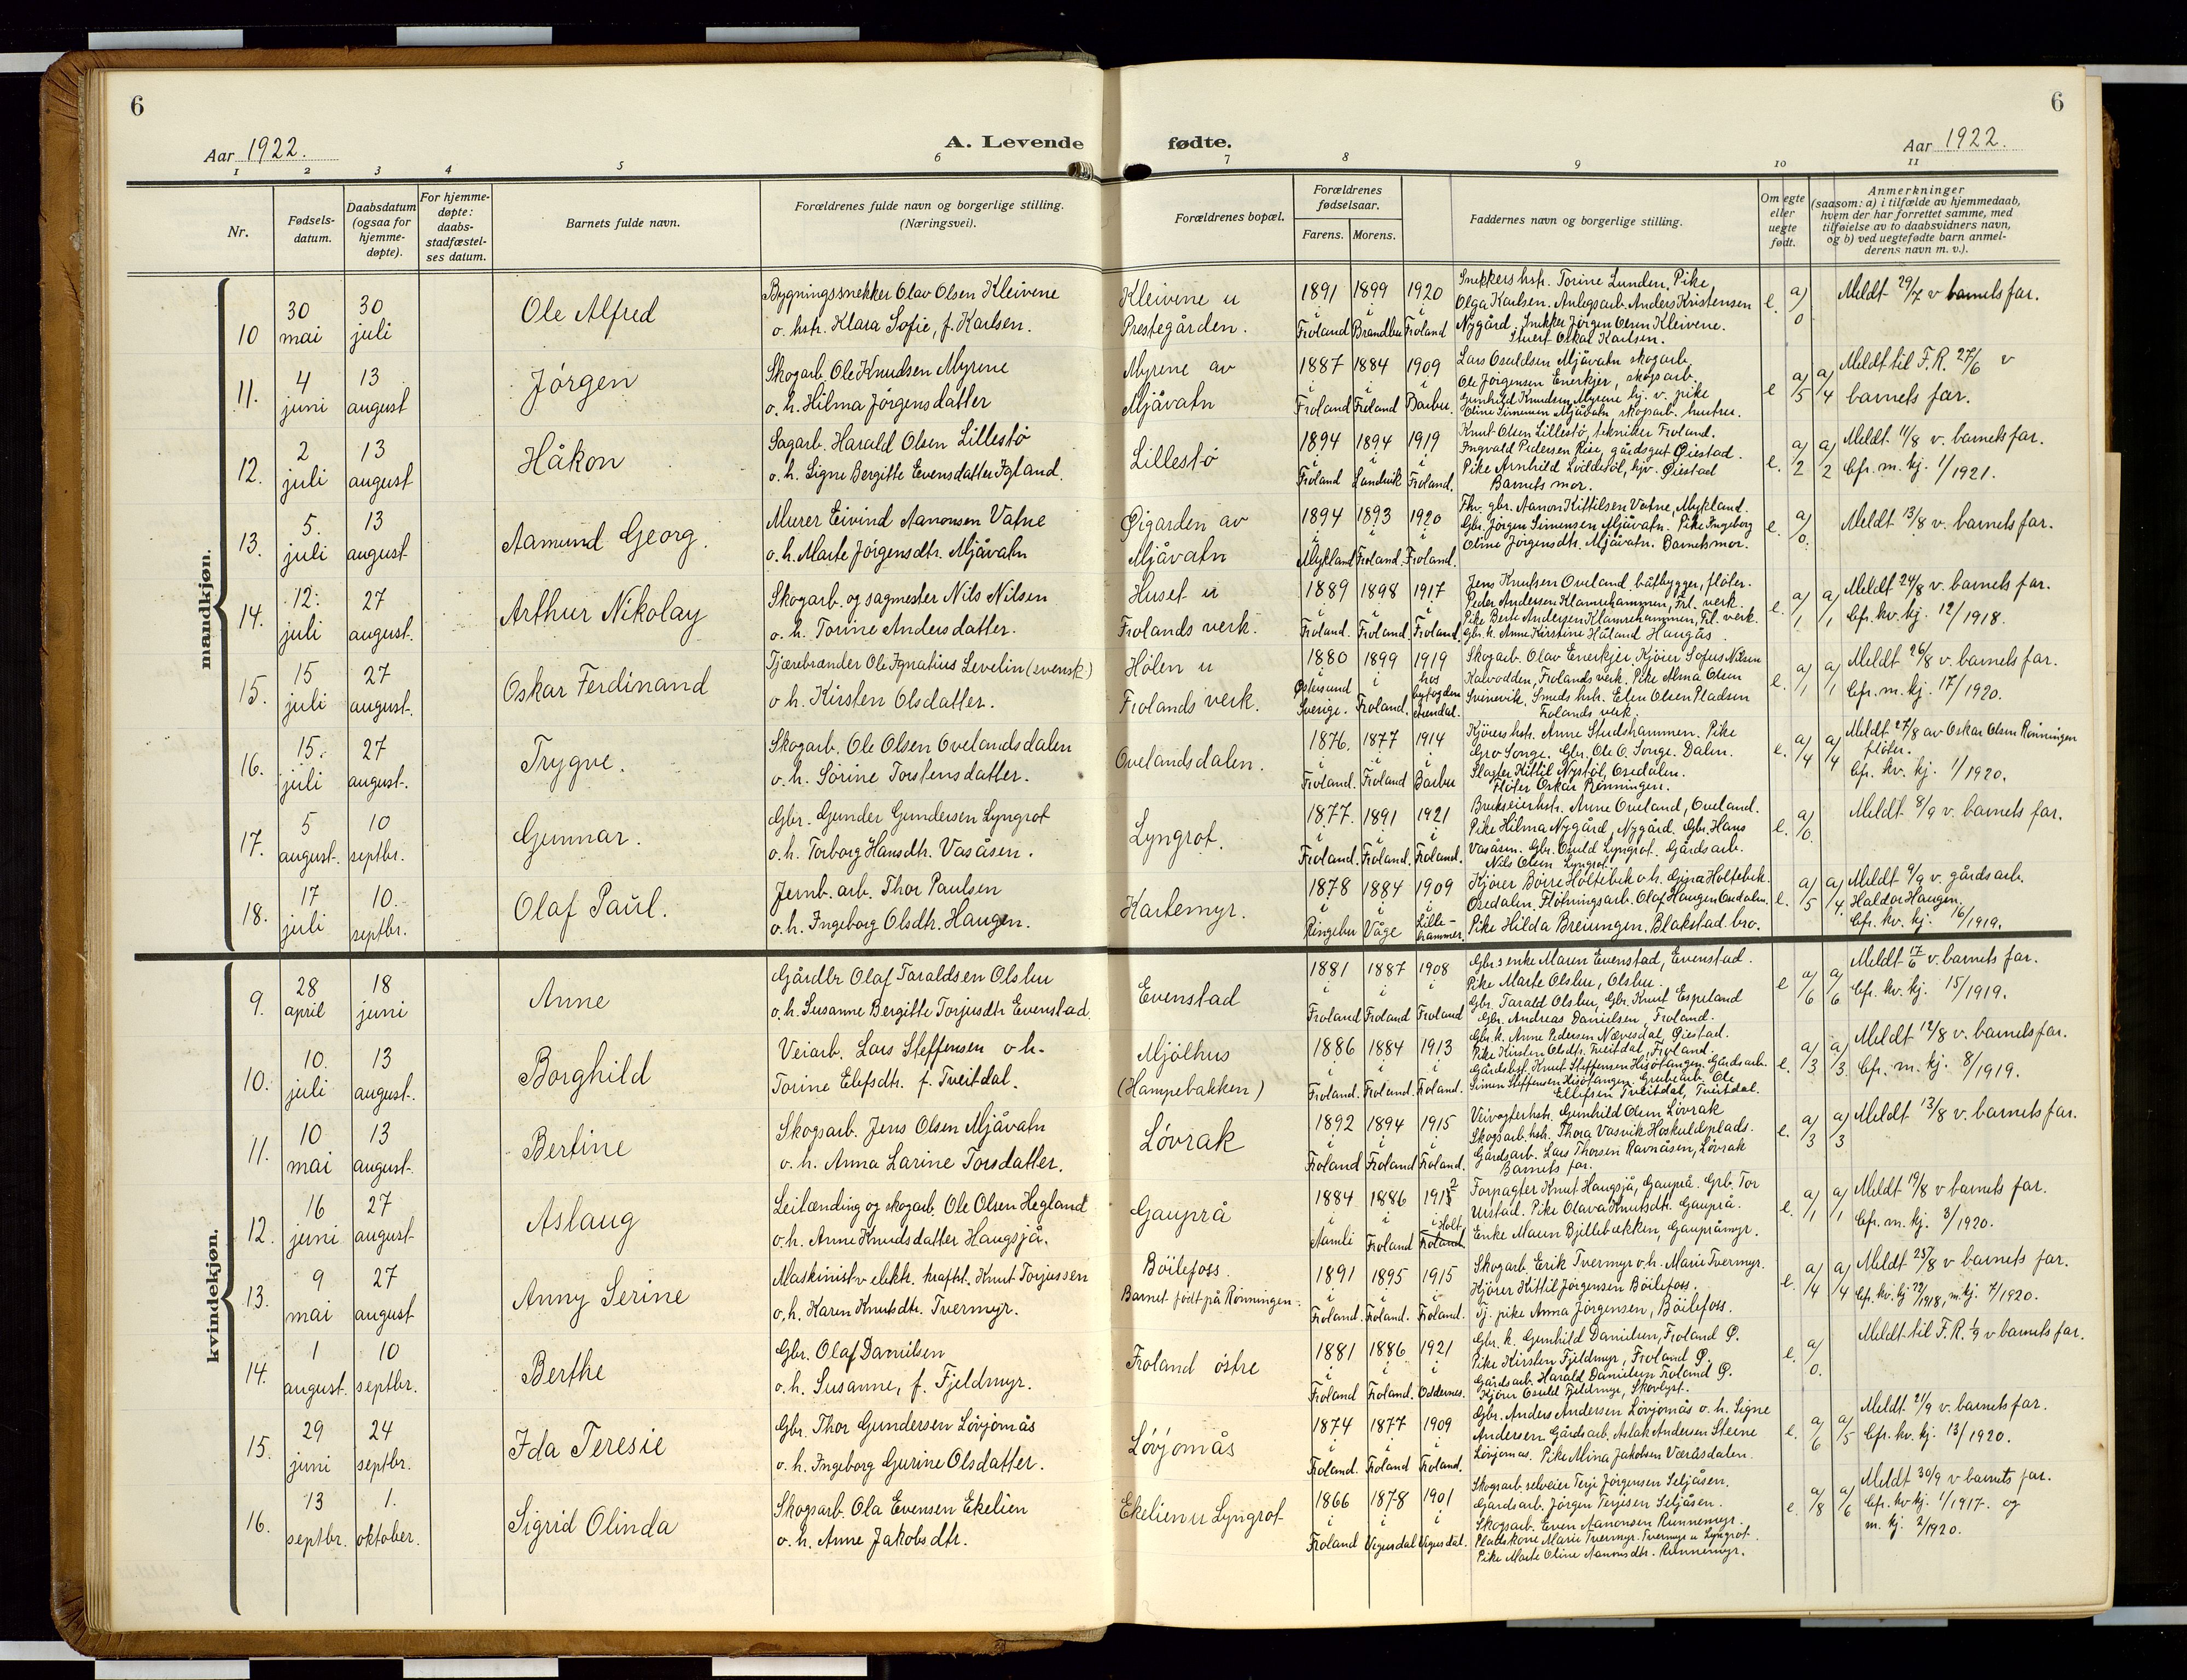 6
Aar 1922.
A. Levende
fødte.
Aar 1922.
6
1 2 3 4 5 6 7 8 9 10 11
Nr.
Fødsels-
datum.
Daabsdatum
(ogsaa for
hjemme-
døpte).
For hjemme-
døpte:
daabs-
stadfæstel-
ses datum.
Barnets fulde navn.
Forældrenes fulde navn og borgerlige stilling.
(Næringsvei).
Forældrenes bopæl.
Forældrenes
fødselsaar.
Farens. Morens.
Faddernes navn og borgerlige stilling.
Om egte
eller
uegte
født.
Anmerkninger
(saasom: a) i tilfælde av hjemmedaab,
hvem der har forrettet samme, med
tilføielse av to daabsvidners navn,
og b) ved uegtefødte barn anmel-
derens navn m. v.).
mandkjøn.
10 30 mai 30 juli Ole Alfred
Bygningssnekker Olav Olsen Kleivene
o. hstr. Klara Sofie, f. Karlsen.
Kleivene u
Prestegården.
1891 1899 1920
i i i
Froland Brandbu Froland
Snekkers hstr. Torine Lunden. Pike
Olga Karlsen. Anlegsarb. Anders Kristensen
Nygård. Snekker Jörgen Olsen Kleivene.
Stuert Oskar Karlsen.
e. a)/0
Meldt 29/7 v barnets far.
11. 4 juni 13 august Jörgen
Skogarb. Ole Knudsen Myrene
o. h. Hilma Jörgensdatter
Myrene av
Mjåvatn
1887 1884 1909
i i i
Froland Froland Barbu.
Lars Osuldsen Mjåvatn skogarb.
Ole Jörgensen Enerkjer, skogsarb.
Gunhild Knudsen Myrene hj. v. pike
Oline Simonsen Mjåvatn skogarb. hustru.
e a)/5 a)/4
Meldt til F.R. 27/6 v
barnets far.
12. 2 juli 13 august Håkon
Sagarb. Harald Olsen Lillestö
o. h. Signe Bergitte Evensdatter Igland.
Lillestö
1894 1894 1919
i i i
Froland Landvik Froland.
Knut Olsen Lillestö, tekniker Froland.
Ingvald Pedersen Rise, gårdsgut Öiestad.
Pike Arnhild Lvildesöl, hjv. Öiestad
Barnets mor.
e. a)/2 a)/2
Meldt 11/8 v. barnets far.
Cfr. m. kj. 1/1921.
13. 5. juli 13 august Aamund Georg.
Murer Eivind Aanonsen Vatne
o. h. Marte Jörgensdtr. Mjåvatn
Öigarden av
Mjåvatn
1894 1893 1920
i i i
Mykland Froland. Froland.
Fhv. gbr. Aanon Kittilsen Vatne, Mykland.
Gbr. Jörgen Simonsen Mjåvatn. Pike Ingeborg
Oline Jörgensdtr. Mjåvatn. Barnets mor.
e. a)/0.
Meldt 13/8 v. barnets far.
14. 12: juli 27 august. Arthur Nikolay
Skogarb. og sagmester Nils Nilsen
o. h. Torine Andersdatter.
Huset u
Frolands verk.
1889 1898 1917
i i i
Froland. Froland. Froland.
Jens Knutsen Oveland båtbygger, flöter.
Peder Andersen Klamrehammen, Frl. verk.
Pike Berte Andersen Klamrehammen, Fr. verk.
Gbr. h. Anne Kirstine Håland Haugås.
e. a)/1 a)/1
Meldt 24/8 v. barnets far.
Cfr. kv. kj. 12/1918.
15. 15 juli 27 august. Oskar Ferdinand
Tjærebrænder Ole Ignatius Levelin (svensk)
o h. Kirsten Olsdatter.
Hölen u
Frolands verk.
1880 1899 1919
Östersund Sverige. i Froland. hos byfogden Arendal.
Skogarb. Olav Enerkjer. Kjörer Sofus Nilsen
Kalvodden, Frolands verk. Pike Alma Olsen
Svinevik. Smeds hstr. Elen Olsen Pladsen
Frolands verk.
e. a)/1 a)/1
Meldt 26/8 v. barnets far.
Cfr. m. kj. 17/1920.
16. 15. juli 27 august. Trygve.
Skogarb. Ole Olsen Ovelandsdalen
o. h. Sörine Torstensdatter.
Ovelandsdalen.
1876. 1877 1914
i i i
Froland. Froland Barbu
Kjörers hstr. Anne Studshammen. Pike
Gro Songe. Gbr. Ole O. Songe. Dalen.
Slagter Kittil Nystöl, Osedalen.
Flöter Oskar Rönningen.
e. a)/4 a)/4
Meldt 27/8 av Oskar Olsen Rönningen
flöter.
Cfr. kv. kj. 1/1920.
17. 5 august. 10 septbr. Gunnar.
Gbr. Gunder Gundersen Lyngrot
o. h. Torborg Hansdtr. Vasåsen.
Lyngrot.
1877. 1891 1921
i i i
Froland. Froland. Froland.
Brukseierhstr. Anne Oveland, Oveland.
Pike Hilma Nygård, Nygård. Gbr. Hans
Vasåsen. Gbr. Osuld Lyngrot. Gårdsarb.
Nils Olsen Lyngrot.
e. a)/0.
Meldt 8/9 v. barnets far.
18. 17 juli 10. septbr. Olaf Paul.
Jernb. arb. Thor Paulsen
o. h. Ingeborg Olsdtr. Haugen.
Kartemyr.
1878 1884 1909
i i i
Ringebu Våge Lille-hammer.
Kjörer Börre Holtebek o h. Gina Holtebek.
Osedalen. Flötningsarb. Olaf Haugen Osedalen.
Pike Hilda Breiungen. Blakstad bro.
e. a)/5 a)/4.
Meldt 9/9 v. gårdsarb.
Haldor Haugen.
Cfr. kv. kj. 16/1919.
kvindekjøn.
9. 28 april 18 juni Anne
Gårdbr Olaf Taraldsen Olsbu
o. h. Susanne Bergitte Torjusdtr Evenstad.
Evenstad
1881 1887 1908
i i i
Froland Froland Froland
Gbr.s enke Maren Evenstad, Evenstad.
Pike Marte Olsbu, Olsbu.
Gbr. Tarald Olsbu, Gbr. Knut Espeland
Gbr. Andreas Danielsen, Froland.
e a)/6 a)/6
Meldt 17/6 v. barnets far.
Cfr. kv. kj. 15/1919.
10. 10. juli 13 august. Borghild
Veiarb. Lars Steffensen o h.
Torine Elefsdtr. f. Tveitdal.
Mjölhus
(Hampebakken)
1886 1884 1913
i i i
Froland. Froland. Froland.
Gbr. k. Anne Pedersen Nævesdal, Öiestad.
Pike Kirsten Olsdtr. Tveitdal, Froland.
Gårdsbst. Knut Steffensen Hisötangen. Gårdsarb.
Simen Steffensen Hisötangen. Grubearb. Ole
Ellefsen Tveitdal, Tveitdal.
e. a)/3 a)/3.
Meldt 12/8 v. barnets far.
Cfr. m. kj. 8/1919.
11. 10 mai 13 august. Bertine
Skogsarb. Jens Olsen Mjåvatn
o. h. Anna Larine Torsdatter.
Lövrak
1892 1894 1915
i i i
Froland Froland Froland.
Veivogterhstr. Gunhild Olsen Lövrak
Skogsarb. hstr. Thora Vasvik Hoskuldsplads.
Gårdsarb. Lars Thorsen Ravnåsen, Lövrak
Barnets far.
e. a)/3 a)/3
Meldt 13/8 v. barnets far.
12. 16 juni 27 august. Aslaug
Leilænding og skogarb. Ole Olsen Hegland
o. h. Anne Knudsdatter Haugsjå.
Gauprå
1884 1886 1912
i i i Holt
Aamli Froland Froland
Forpagter Knut Haugsjå, Gauprå. Grb. Tor
Urstad. Pike Olava Knutsdtr. Gauprå.
Enke Maren Bjellebækken, Gaupråmyr.
e. a)/1 a)/1
Meldt 19/8 v barnets far.
Cfr. m. kj. 3/1920.
13. 9 mai 27 august Anny Serine
Maskinist v elektr. kraftst. Knut Torjussen
o. h. Karen Knutsdtr. Tvermyr.
Böilefoss.
Barnet födt på Rönningen.
1891 1895 1915
i i i
Froland. Froland. Froland.
Skogarb. Erik Tvermyr o. h. Marie Tvermyr.
Kjörer Kittil Jörgensen Böilefoss.
Tj. pike Anna Jörgensen, Böilefoss.
e. a)/4 a)/4
Meldt 25/8 v barnets far.
Cfr. kv. kj. 22/1918, m. kj. 7/1920.
14. 1 august. 10 septbr. Berthe
Gbr. Olaf Danielsen
o. h. Susanne, f. Fjeldmyr.
Froland östre
1881 1886 1921
i i i
Froland Froland. Oddernes.
Gbr. k. Gunhild Danielsen, Froland Ö.
Pike Kirsten Fjeldmyr, Froland Ö.
Gårdsarb. Harald Danielsen Froland Ö.
Kjörer Osuld Fjeldmyr, Skovlyst.
e. a)/0.
Meldt til F.R. 1/9 v barnets far.
15. 29 juni 24 septbr. Ida Teresie
Gbr. Thor Gundersen Lövjomås
o. h. Ingeborg Gurine Olsdatter.
Lövjomås
1874 1877 1909
i i i
Froland. Froland Froland.
Gbr. Anders Andersen Lövjomås o. h. Signe
Andersen. Gårdsarb. Aslak Andersen Steene
Lövjomås. Pike Mina Jakobsen Væråsdalen.
e. a)/6 a)/5
Meldt 21/9 v. barnets far.
Cfr. kv. kj. 13/1920.
16. 13 septbr. 1. oktober. Sigrid Olinda
Skogsarb. Ola Evensen Ekelien
o. h. Anne Jakobsdtr.
Ekelien u Lyngrot
1866 1878 1901
i i i
Froland Vegusdal Vegusdal.
Skogsarb. selveier Terje Jörgensen Seljåsen.
Gårdsarb. Jörgen Terjesen Seljåsen.
Skogsarb. Even Aanonsen Runnemyr.
Pladskone Marie Tvermyr. Tvermyr u Lyngrot.
Pike Marte Oline Aanonsdtr. Runnemyr.
e. a)/8 a)/6
Meldt 30/9 v barnets far.
Cfr. kv kj. 1/1917. og
m. kj. 2/1920.